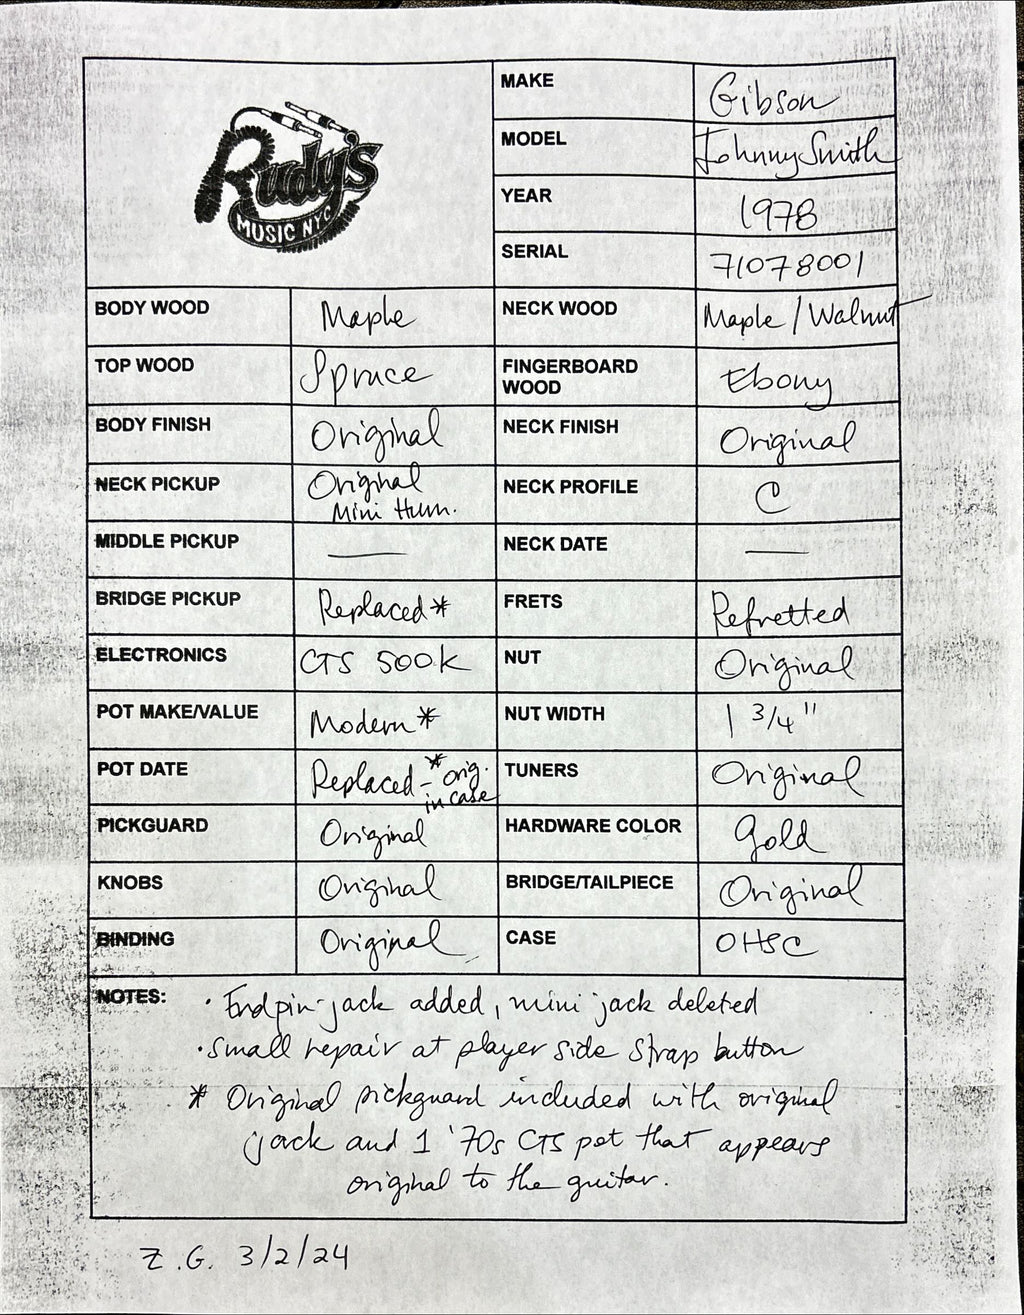 Rudy's
MUSIC NYC
MAKE Gibson
MODEL Johnny Smith
YEAR 1978
SERIAL 71078001
BODY WOOD Maple NECK WOOD Maple / Walnut
TOP WOOD Spruce FINGERBOARD WOOD Ebony
BODY FINISH Original NECK FINISH Original
NECK PICKUP Original Mini Hum. NECK PROFILE C
MIDDLE PICKUP — NECK DATE —
BRIDGE PICKUP Replaced* FRETS Refretted
ELECTRONICS CTS 500K NUT Original
POT MAKE/VALUE Modern* NUT WIDTH 1 3/4"
POT DATE Replaced - *orig. in case TUNERS Original
PICKGUARD Original HARDWARE COLOR Gold
KNOBS Original BRIDGE/TAILPIECE Original
BINDING Original CASE OHSC
NOTES: · Endpin-jack added, mini jack deleted
· small repair at player side strap button
* Original pickguard included with original
jack and 1 '70s CTS pot that appears
original to the guitar.
Z.G. 3/2/24